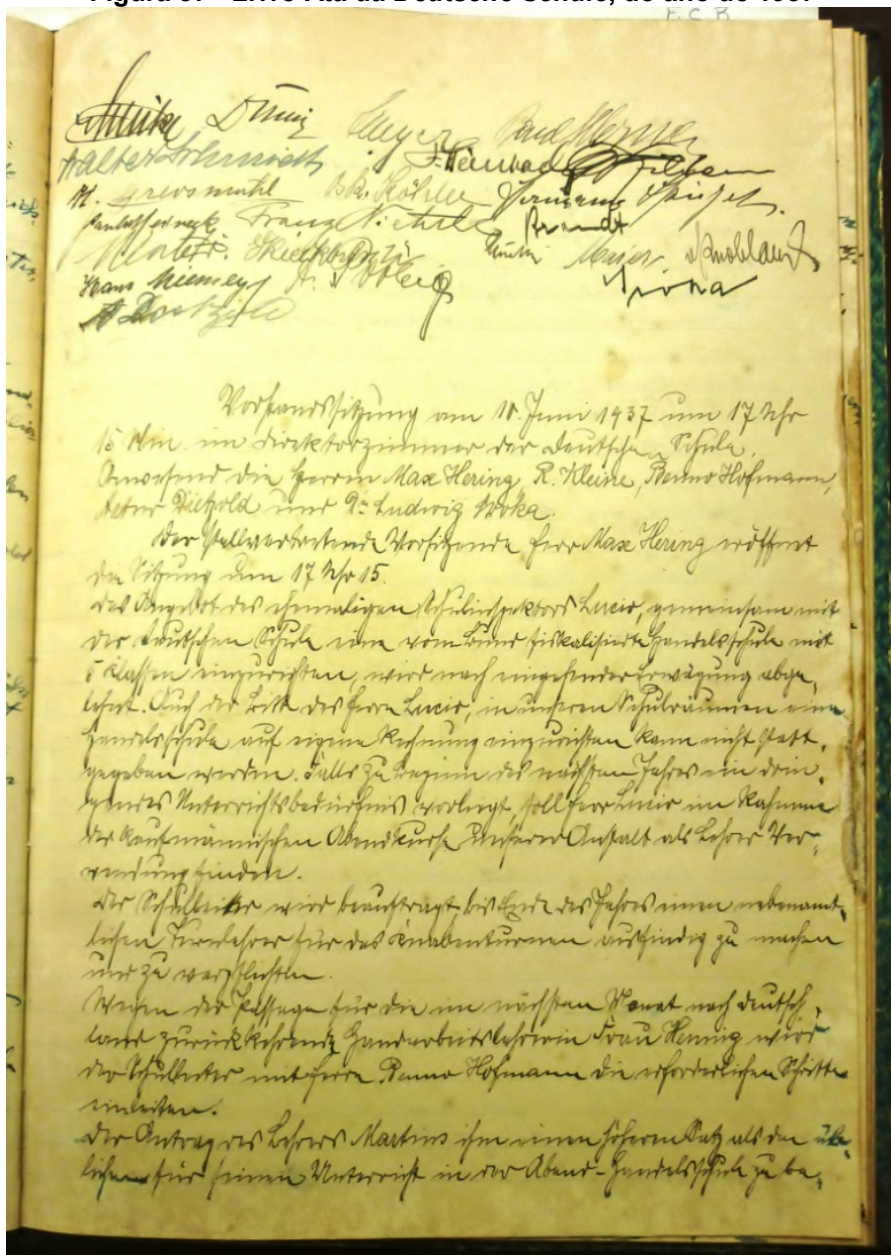 F.C.B
Meyer Paul Werner
Walter Schmidt
H. Grevsmühl Köhler Hermann
Franz Brandt
Maier Knoblauch
Hans Niemeyer
Vorstandssitzung am 10. Juni 1937 um 17 Uhr
15 Min. im Direktorzimmer der Deutschen Schule.
Anwesend die Herren Max Hering, R. Kleine, Benno Hofmann,
Artur Dietzold und Dr. Ludwig Sroka.
Der stellvertretende Vorsitzende Herr Max Hering eröffnet
die Sitzung um 17 Uhr 15.
Das Angebot des ehemaligen Schulinspektors Lucio, gemeinsam mit
der Deutschen Schule eine vom Bund fiskalisierte Handelsschule mit
5 Klassen einzurichten, wird nach eingehender Erwägung abge-
lehnt. Auch der Bitte des Herrn Lucio, in unseren Schulräumen eine
Handelsschule auf eigene Rechnung einzurichten kann nicht statt-
gegeben werden. Falls zu Beginn des nächsten Jahres ein drin-
gendes Unterrichtsbedürfnis vorliegt, soll Herr Lucio im Rahmen
der kaufmännischen Abendkurse unserer Anstalt als Lehrer Ver-
wendung finden.
Der Schulleiter wird beauftragt, bis Ende des Jahres einen nebenamt-
lichen Turnlehrer für das Knabenturnen ausfindig zu machen
und zu verpflichten.
Wegen der Passage für die im nächsten Monat nach Deutsch-
land zurückkehrende Handarbeitslehrerin Frau Hennig wird
der Schulleiter mit Herrn Benno Hofmann die erforderlichen Schritte
einleiten.
Der Antrag des Lehrers Martins ihm einen höheren Satz als den üb-
lichen für seinen Unterricht in der Abend-Handelsschule zu be-